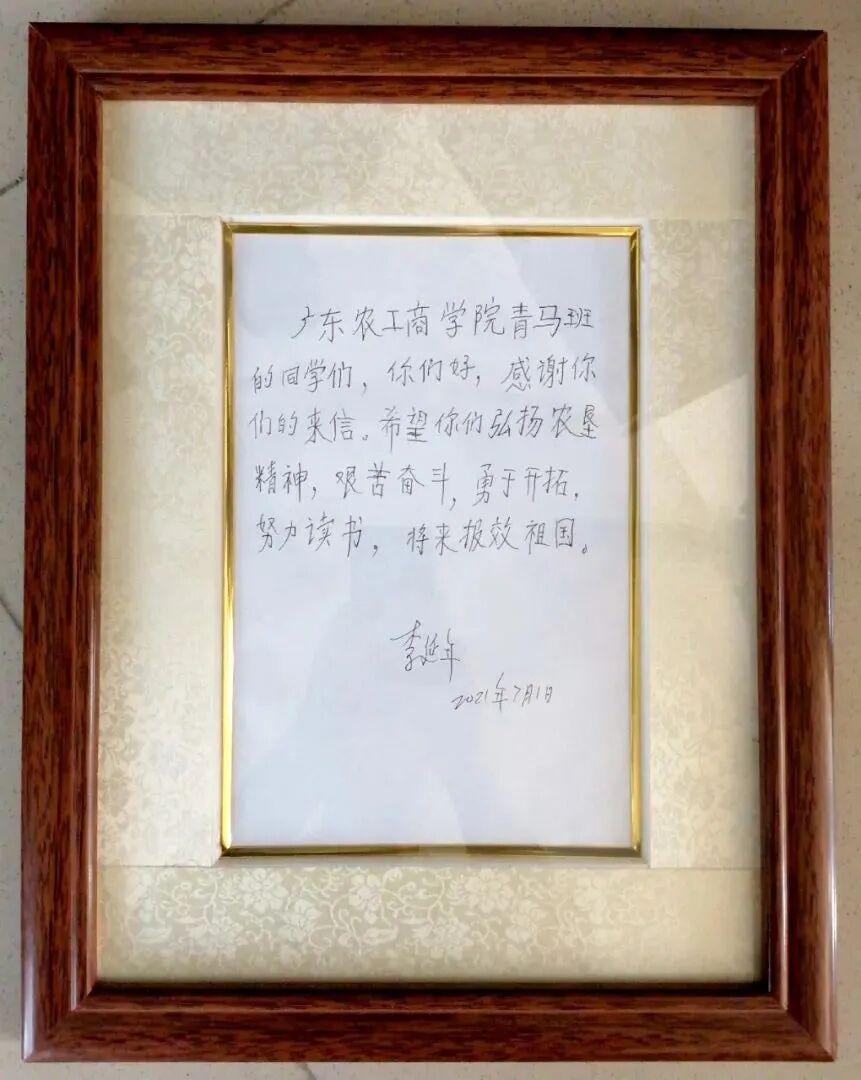 广东农工商学院青马班
的同学们，你们好，感谢你
们的来信。希望你们弘扬农垦
精神，艰苦奋斗，勇于开拓，
努力读书，将来报效祖国。
李延年
2021年7月1日